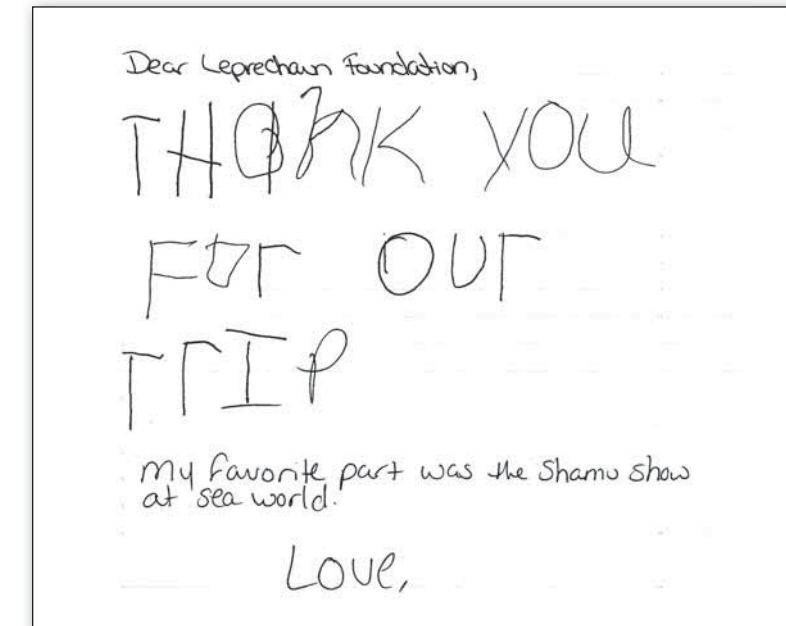 Dear Leprechaun Foundation,
THANK YOU
FOr OUr
TrIP
My favorite part was the Shamu show
at sea world.
Love,